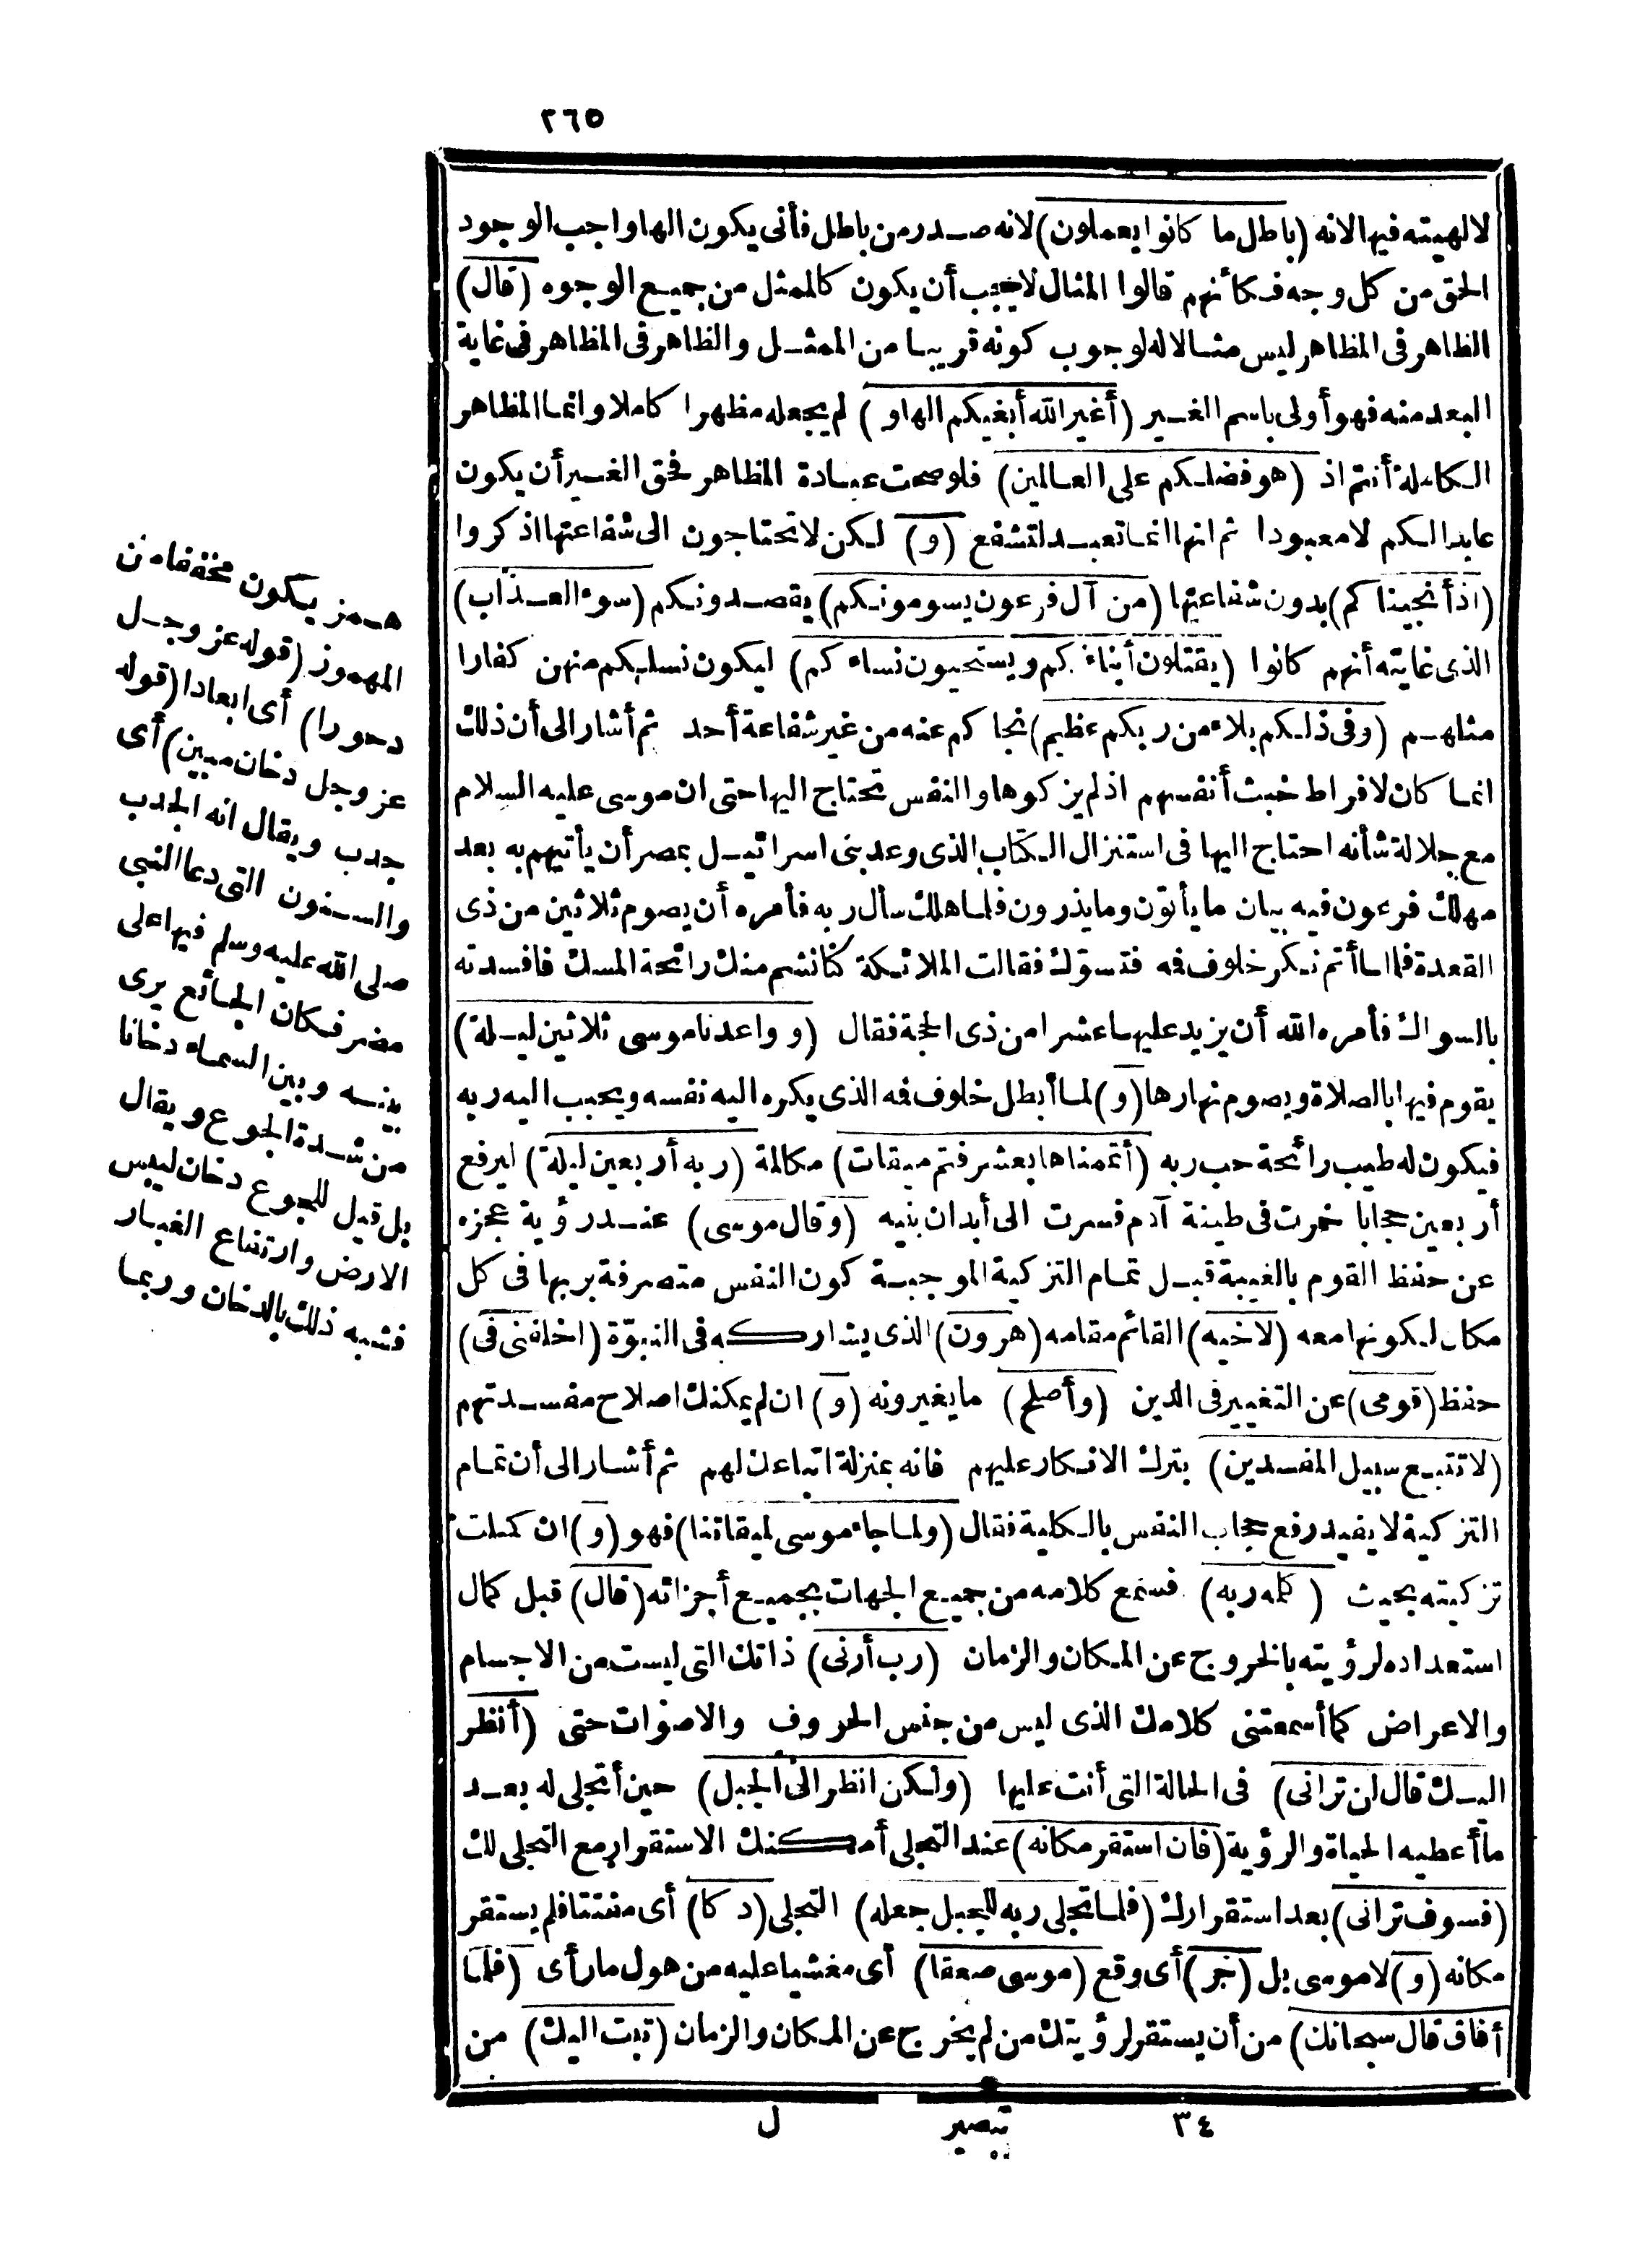 ٢٦٥
لالهيته فيها لانه (باطل ما كانوا يعملون) لانه صدر من باطل فأنى يكون الها واجب الوجود
الحق من كل وجه فكأنهم قالوا المثال لا يجب أن يكون كالممثل من جميع الوجوه (قال)
الظاهر فى المظاهر ليس مثالا له لوجوب كونه قريبا من الممثل والظاهر فى المظاهر فى غاية
البعد منه فهو أولى باسم الغير (أغير الله أبغيكم الها و) لم يجعله مظهرا كاملا وانما المظاهر
الكاملة أنتم اذ (هو فضلكم على العالمين) فلو صحت عبادة المظاهر فحق الغير أن يكون
عابدا لكم لا معبودا ثم انها انما تعبد لتشفع (و) لكن لا تحتاجون الى شفاعتها اذكروا
(اذ أنجيناكم) بدون شفاعتها (من آل فرعون يسومونكم) يقصدونكم (سوء العذاب)
الذى غايته أنهم كانوا (يقتلون أبناءكم ويستحيون نساءكم) ليكون نسلكم منهن كفارا
مثلهم (وفى ذلكم بلاء من ربكم عظيم) نجاكم عنه من غير شفاعة أحد ثم أشار الى أن ذلك
انما كان لافراط خبث أنفسهم اذ لم يزكوها والنفس تحتاج اليها حتى ان موسى عليه السلام
مع جلالة شأنه احتاج اليها فى استنزال الكتاب الذى وعد بنى اسرائيل بمصر أن يأتيهم به بعد
مهلك فرعون فيه بيان ما يأتون وما يذرون فلما هلك سأل ربه فأمره أن يصوم ثلاثين من ذى
القعدة فلما أتم نكر خلوف فه فتسوّك فقالت الملائكة كنا نشم منك رائحة المسك فافسدته
بالسواك فأمره الله أن يزيد عليها عشرا من ذى الحجة فقال (و واعدنا موسى ثلاثين ليلة)
يقوم فيها بالصلاة ويصوم نهارها (و) لما أبطل خلوف فه الذى يكره اليه نفسه ويحبب اليه ربه
فيكون له طيب رائحة حب ربه (أتممناها بعشر فتم ميقات) مكالمة (ربه أربعين ليلة) ليرفع
أربعين حجابا خمرت فى طينة آدم فسرت الى أبدان بنيه (وقال موسى) عند رؤية عجزه
عن حفظ القوم بالغيبة قبل تمام التزكية الموجبة كون النفس متصرفة بربها فى كل
مكان لكونها معه (لاخيه) القائم مقامه (هرون) الذى يشاركه فى النبوّة (اخلفنى فى)
حفظ (قومى) عن التغيير فى الدين (وأصلح) ما يغيرونه (و) ان لم يمكنك اصلاح مفسدتهم
(لا تتبع سبيل المفسدين) بترك الانكار عليهم فانه بمنزلة اتباعك لهم ثم أشار الى أن تمام
التزكية لا يفيد رفع حجاب النفس بالكلية فقال (ولما جاء موسى لميقاتنا) فهو (و) ان كملت
تزكيته بحيث (كلمه ربه) فسمع كلامه من جميع الجهات بجميع أجزائه (قال) قبل كمال
استعداده لرؤيته بالخروج عن المكان والزمان (رب أرنى) ذاتك التى ليست من الاجسام
والاعراض كما أسمعتنى كلامك الذى ليس من جنس الحروف والاصوات حتى (أنظر
اليك قال لن ترانى) فى الحالة التى أنت عليها (ولكن انظر الى الجبل) حين أتجلى له بعد
ما أعطيه الحياة والرؤية (فان استقر مكانه) عند التجلى أمكنك الاستقرار مع التجلى لك
(فسوف ترانى) بعد استقرارك (فلما تجلى ربه للجبل جعله) التجلى (دكا) أى مفتتا فلم يستقر
مكانه (و) لا موسى بل (خر) أى وقع (موسى صعقا) أى مغشيا عليه من هول ما رأى (فلما
أفاق قال سبحانك) من أن يستقر لرؤيتك من لم يخرج عن المكان والزمان (تبت اليك) من
همز يكون مخففا من
المهموز (قوله عز وجل
دحورا) أى ابعادا (قوله
عز وجل دخان مبين) أى
جدب ويقال انه الجدب
والسنون التى دعا النبى
صلى الله عليه وسلم فيها على
مضر فكان الجائع يرى
بينه وبين السماء دخانا
من شدة الجوع ويقال
بل قيل للجوع دخان ليبس
الارض وارتفاع الغبار
فشبه ذلك بالدخان وربما
٣٤ تبصير ل